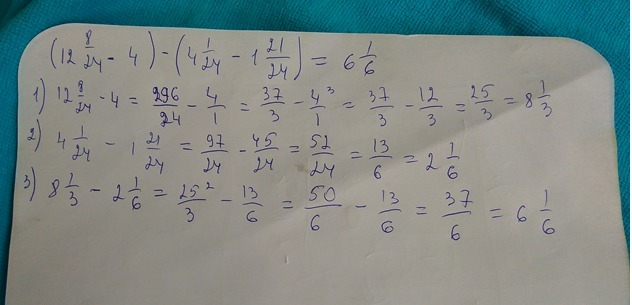 (12 8/24 - 4) - (4 1/24 - 1 21/24) = 6 1/6
1) 12 8/24 - 4 = 296/24 - 4/1 = 37/3 - 4³/1 = 37/3 - 12/3 = 25/3 = 8 1/3
2) 4 1/24 - 1 21/24 = 97/24 - 45/24 = 52/24 = 13/6 = 2 1/6
3) 8 1/3 - 2 1/6 = 25²/3 - 13/6 = 50/6 - 13/6 = 37/6 = 6 1/6